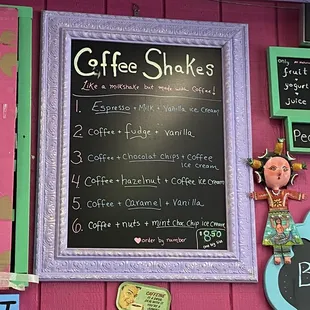 Coffee Shakes
Like a milkshake but made with Coffee!
1. Espresso + Milk + Vanilla ice Cream
2 Coffee + fudge + vanilla
3 Coffee + Chocolat chips + Coffee
ice cream
4 Coffee + hazelnut + Coffee ice cream
5 Coffee + Caramel + Vanilla
6. Coffee + nuts + mint choc Chip ice cream
order by number
$8.50
only
fruit
+
yogurt
+
juice
Pe
CAFFEINE
B